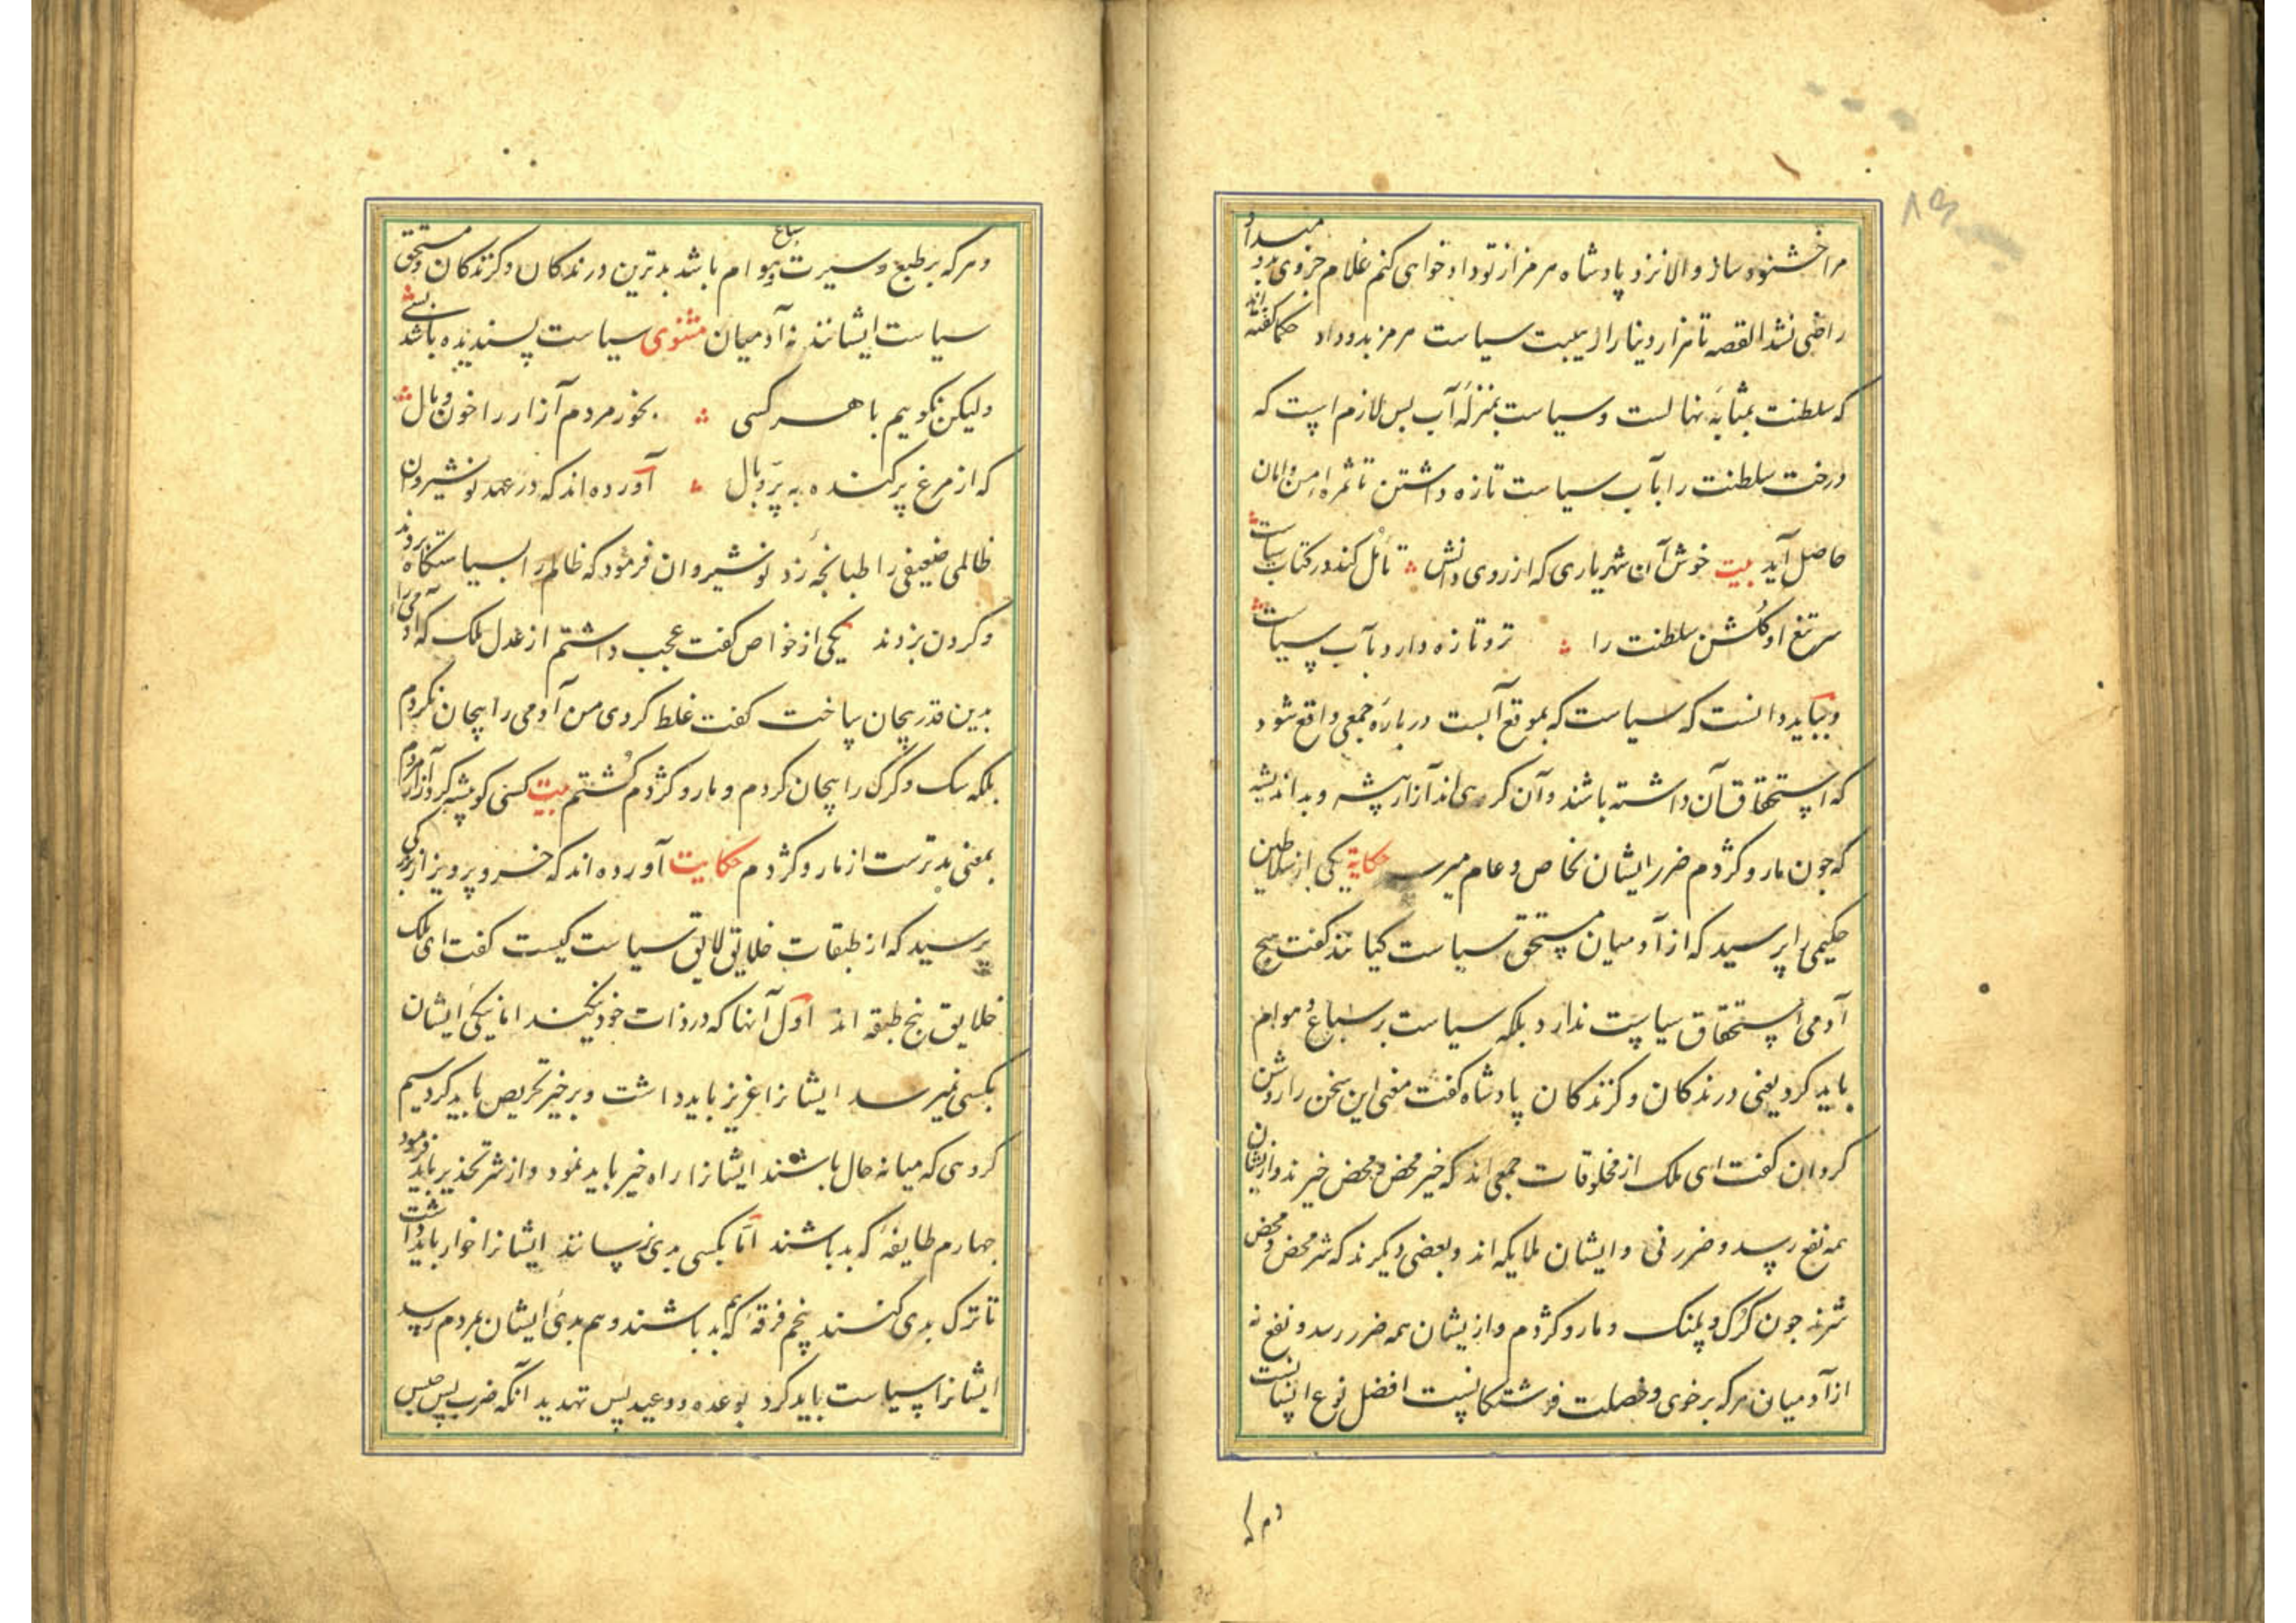 ۸۹
مرا خشنود ساز و الا نزد پادشاه هرمز از تو دادخواهی کنم غلام خروی بدو میداد
راضی نشد القصه تا هزار دینار از هیبت سیاست هرمز بدو داد حکما گفته اند
که سلطنت بمثابه نهالست و سیاست بمنزله آب پس لازم است که
درخت سلطنت را بآب سیاست تازه داشتن تا ثمره امن و امان
حاصل آید بیت خوش آن شهریاری که از روی دانش تأمل کند در کتاب سیاست
سر تیغ او گلشن سلطنت را تر و تازه دارد بآب سیاست
و بباید دانست که سیاست که بموقع آنست در باره جمعی واقع شود
که استحقاق آن داشته باشند و آن کروهی اند آزار پیشه و بداندیشه
که جون مار و کژدم ضرر ایشان بخاص و عام میرسد حکایة یکی از سلاطین
حکیمی را پرسید که از آدمیان مستحق سیاست کیانند گفت هیچ
آدمی استحقاق سیاست ندارد بلکه سیاست بر سباع و هوام
باید کرد یعنی درندکان و کزندکان پادشاه گفت معنی این سخن را روشن
کردان گفت ای ملک از مخلوقات جمعی اند که خیر محض و محض خیرند و از ایشان
همه نفع رسد و ضرر نی و ایشان ملایکه اند و بعضی دیکرند که شر محض و محض
شرند جون کرک و پلنک و مار و کژدم و از یشان همه ضرر رسد و نفع نه
از آدمیان هرکه بر خوی و خصلت فرشتکانست افضل نوع انسانست
و هرکه
و هرکه بر طبع و سیرت سباع و هوام باشد بدترین درندکان و کزندکان و مستحق
سیاست ایشانند نه آدمیان مثنوی سیاست پسندیده باشد بسی
ولیکن نکوییم با هر کسی بخور مردم آزار را خون و مال
که از مرغ بد کنده به پر و بال آورده اند که در عهد نوشیروان
ظالمی ضعیفی را طپانچه زد نوشیروان فرمود که ظالم را بسیاستکاه بردند
و کردن بزدند یکی از خواص گفت عجب داشتم از عدل ملک که آدمی را
بدین قدر بیجان ساخت گفت غلط کردی من آدمی را بیجان نکردم
بلکه سک و کرک را بیجان کردم و مار و کژدم کُشتم بیت کسی کو پیشه کرد آزار مردم
بمعنی بدترست از مار و کژدم حکایت آورده اند که خسرو پرویز از بزرکی
پرسید که از طبقات خلایق لایق سیاست کیست گفت ای ملک
خلایق پنج طبقه اند اول آنها که در ذات خود نیکند اما نیکی ایشان
بکسی نمیرسد ایشانرا عزیز باید داشت و بر خیر تحریص باید کرد سیم
کروهی که میانه حال باشند ایشانرا راه خیر باید نمود و از شر تحذیر باید فرمود
جهارم طایفه که بد باشند اما بکسی بدی نرسانند ایشانرا خوار باید داشت
تا ترک بدی کنند پنجم فرقه که هم بد باشند و هم بدی ایشان بمردم رسد
ایشانرا سیاست باید کرد بوعده و وعید پس تهدید آنکه ضرب پس حبس